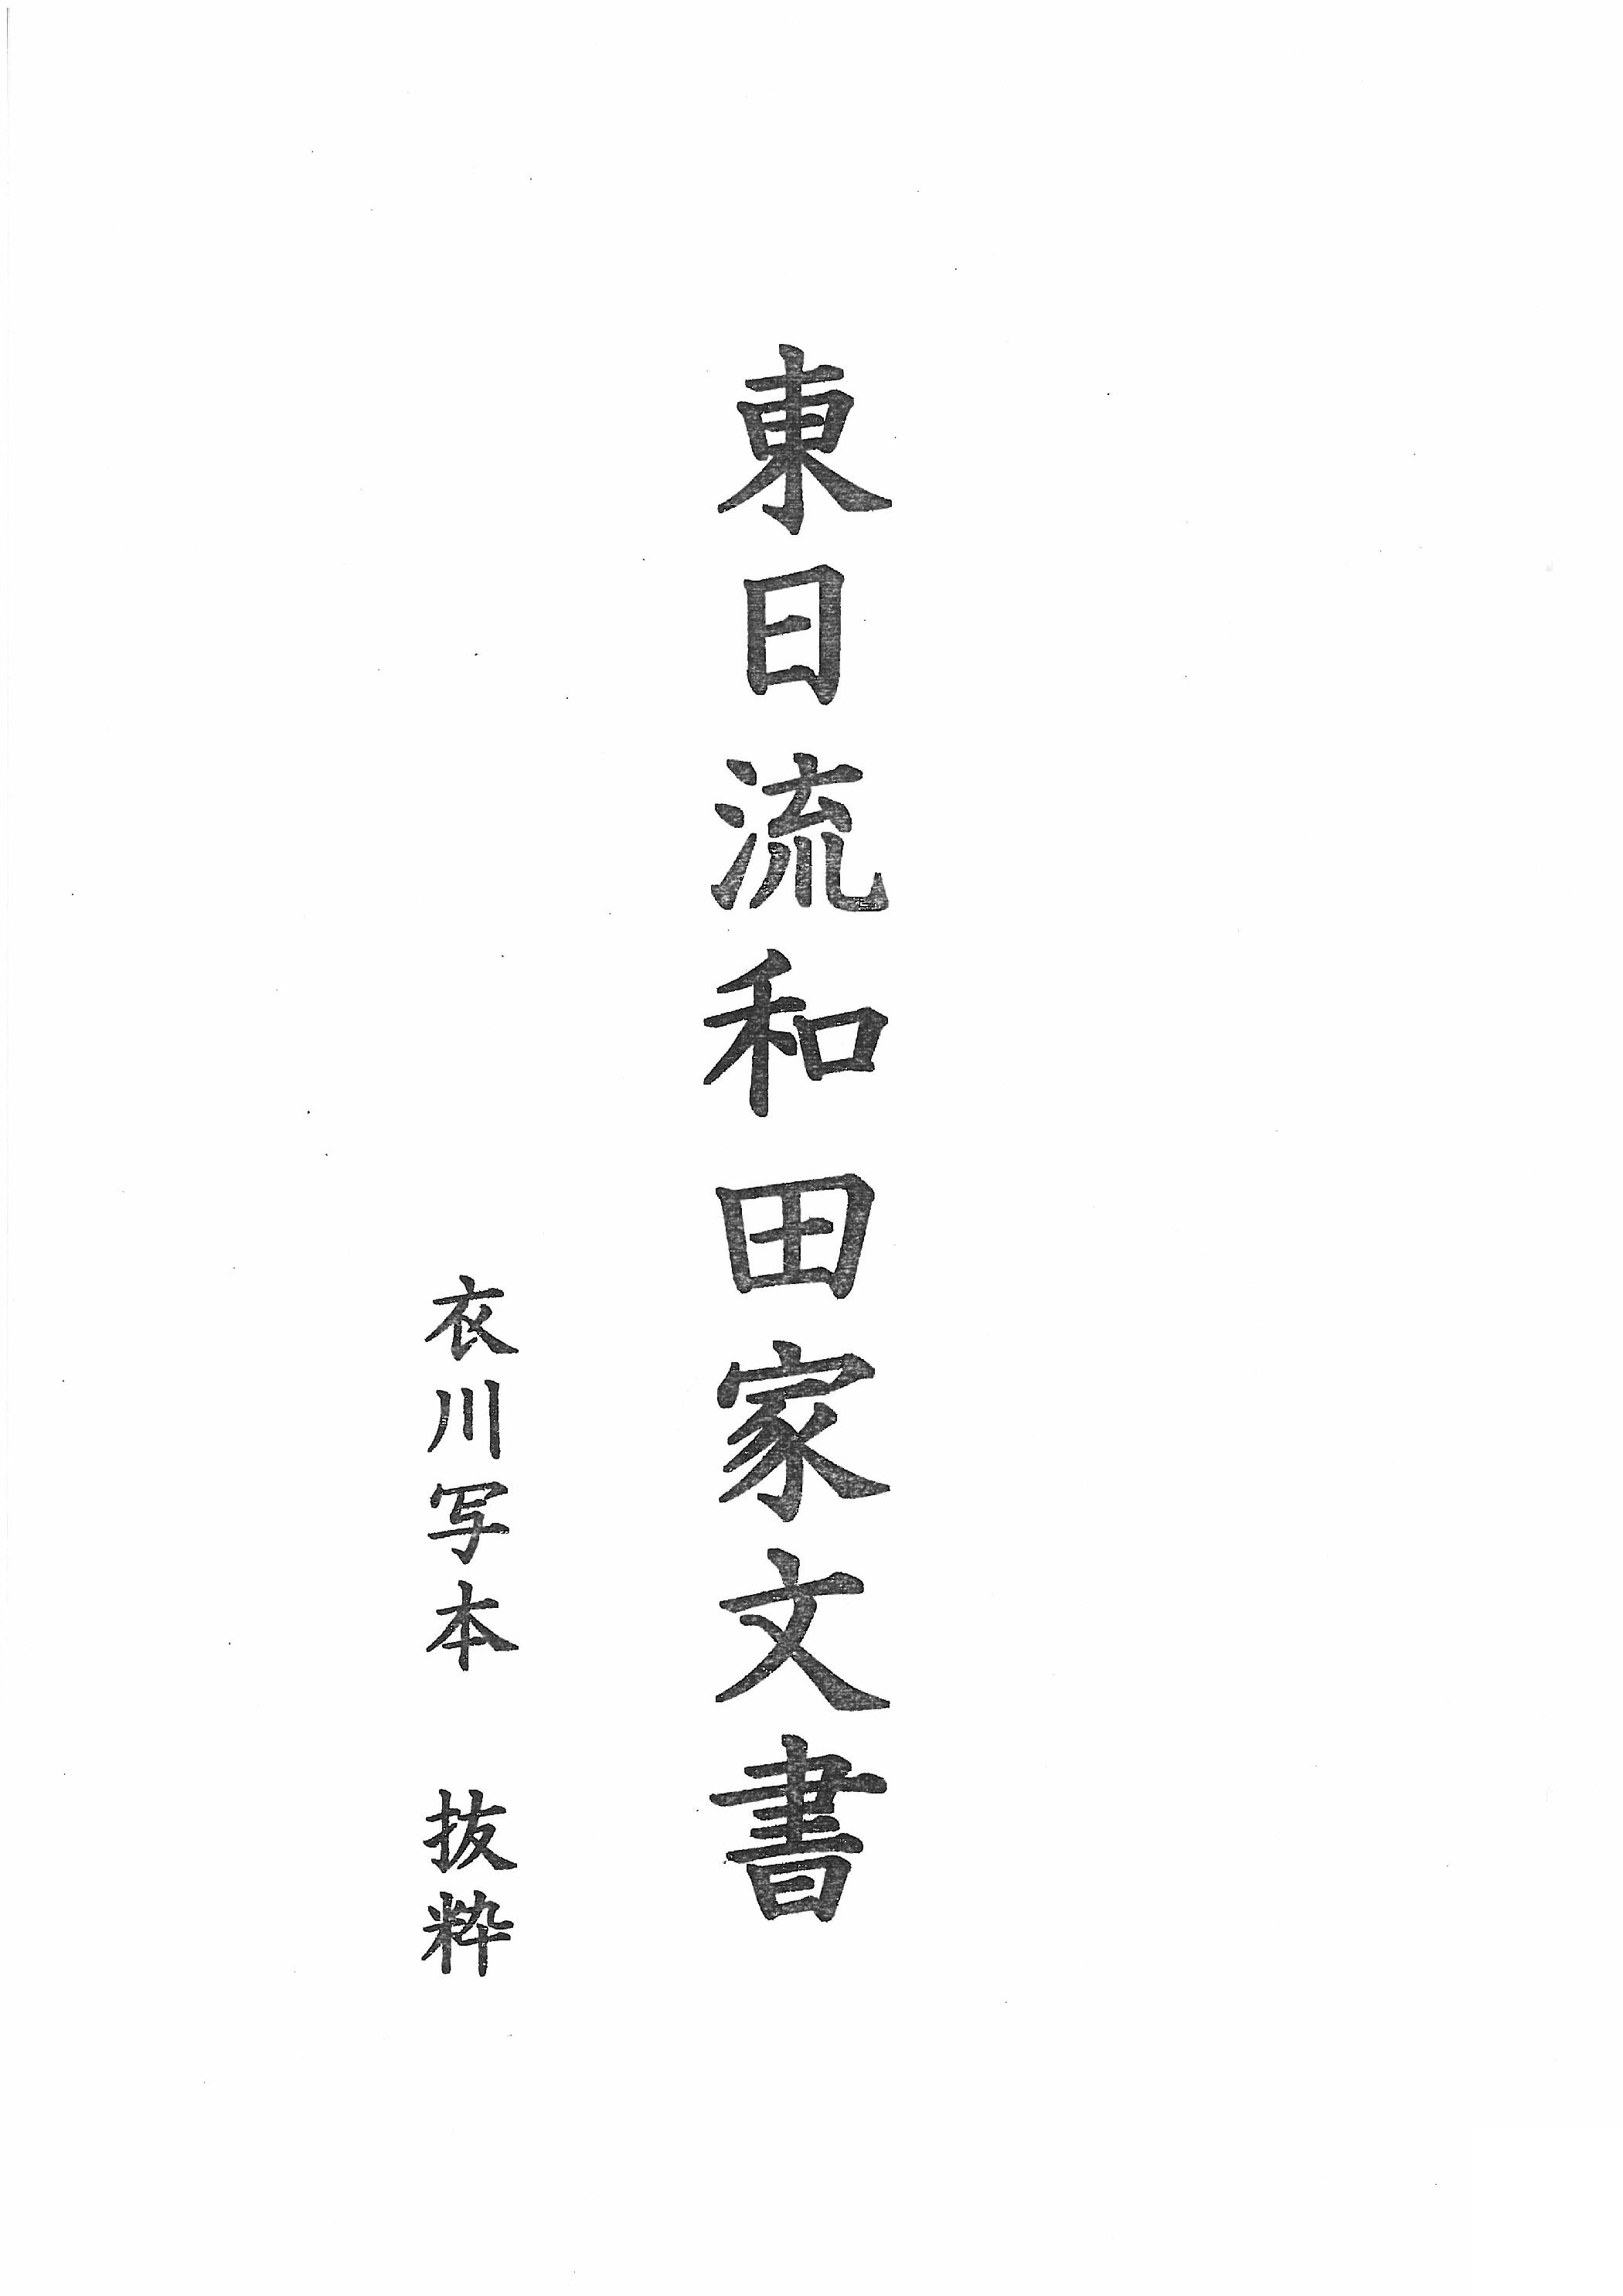 東日流和田家文書
衣川写本　抜粋